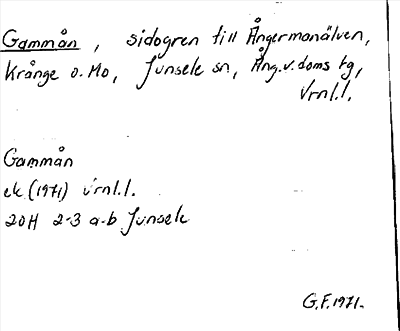 Gammån, sidogren till Ångermanälven,
Krånge o. Mo, Junsele sn, Ång.v.doms tg,
Vrnl.l.
Gammån
ek (1971) vrnl.l.
20H 2-3 a-b Junsele
G.F. 1971.